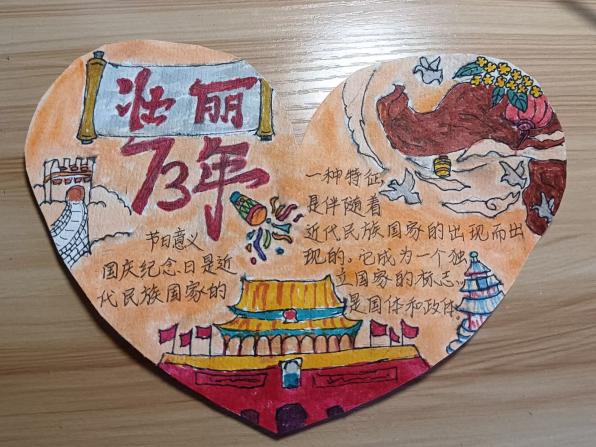 壮丽
73年
节日意义
国庆纪念日是近
代民族国家的
一种特征,
是伴随着
近代民族国家的出现而出
现的。它成为一个独
立国家的标志。
是国体和政体。